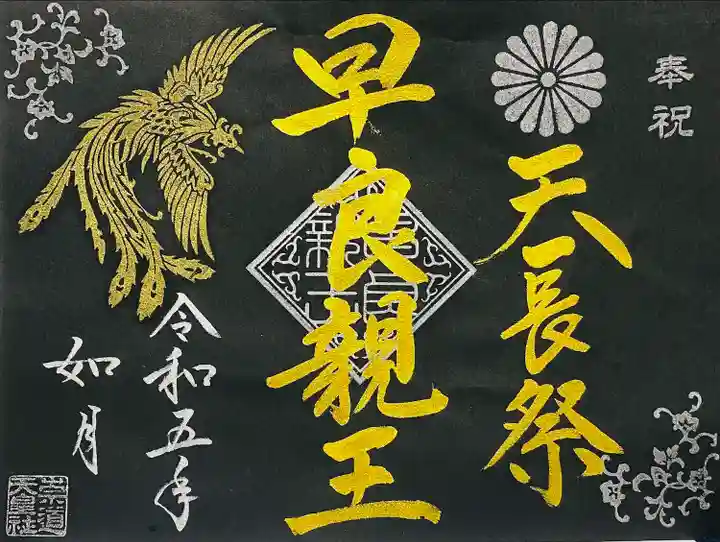 奉祝
天長祭
早良親王
早良親王
令和五年
如月
崇道
天皇社